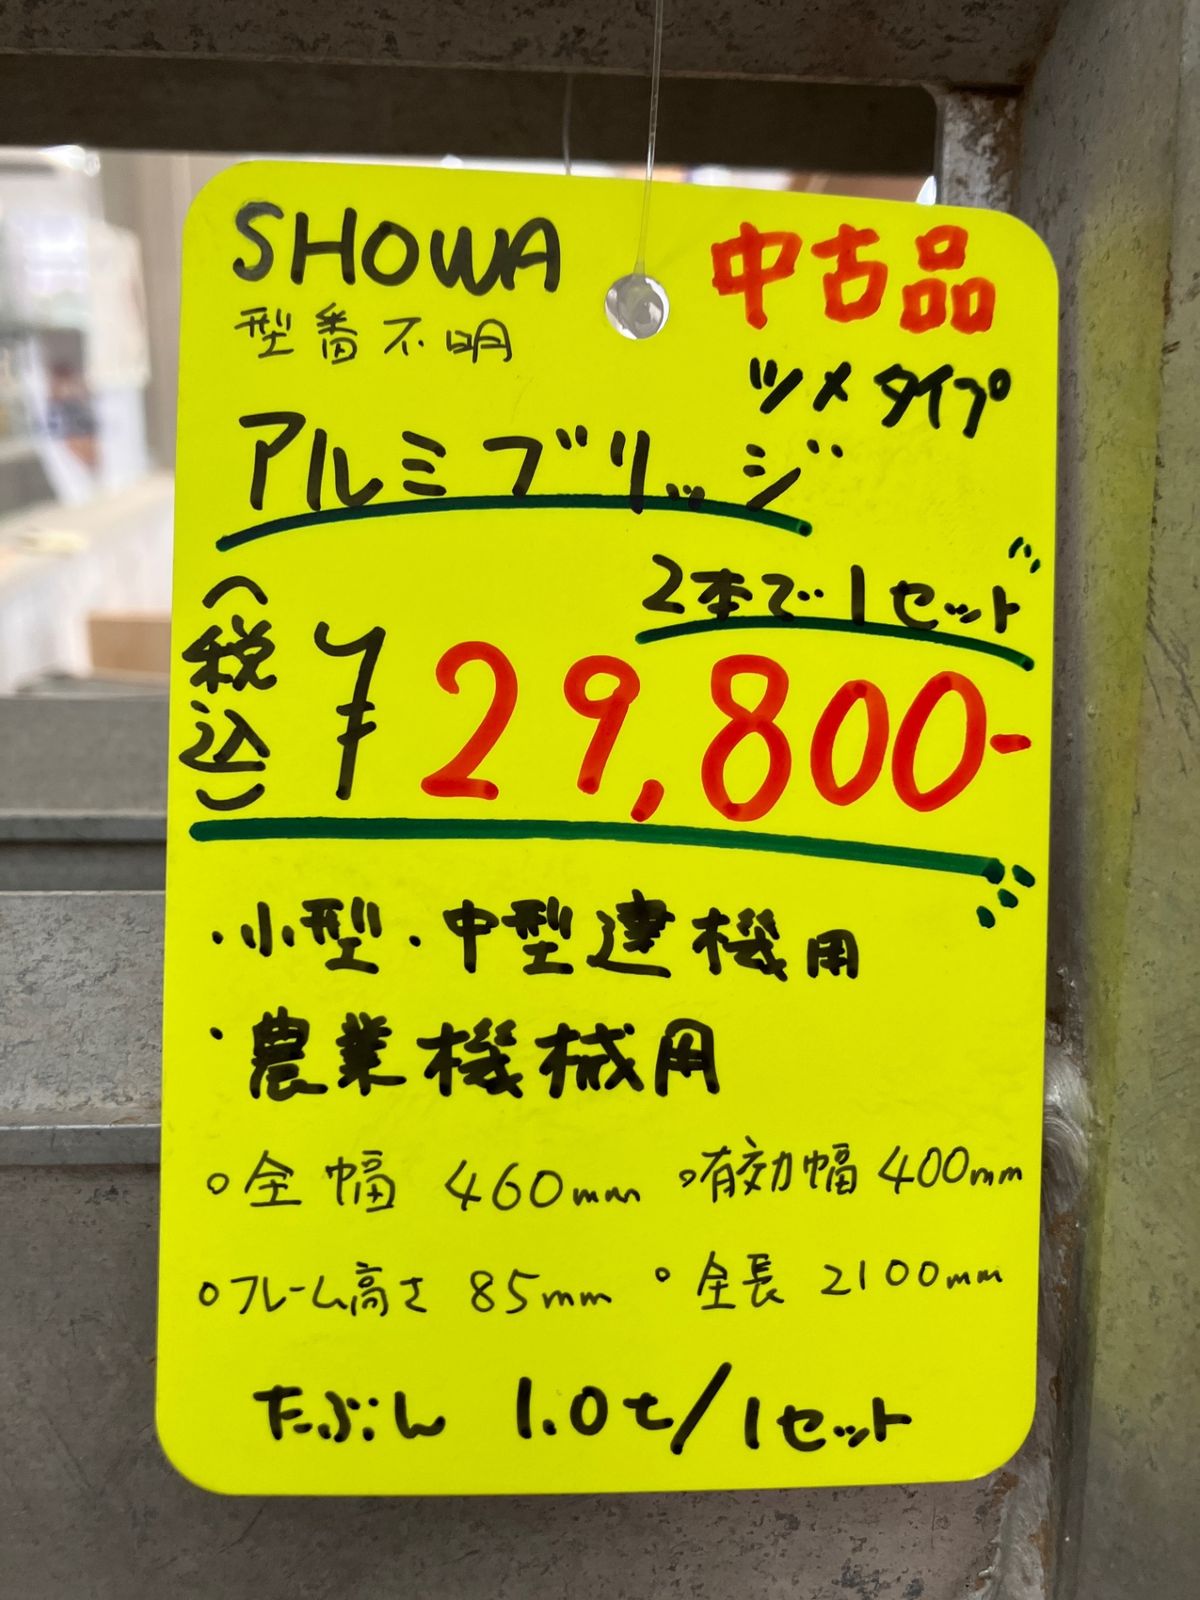 SHOWA
中古品
型番不明
ツメタイプ
アルミブリッジ
2本で1セット
(税込) ¥29,800-
・小型・中型建機用
・農業機械用
○全幅 460mm ○有効幅 400mm
○フレーム高さ 85mm ○全長 2100mm
たぶん 1.0t/1セット